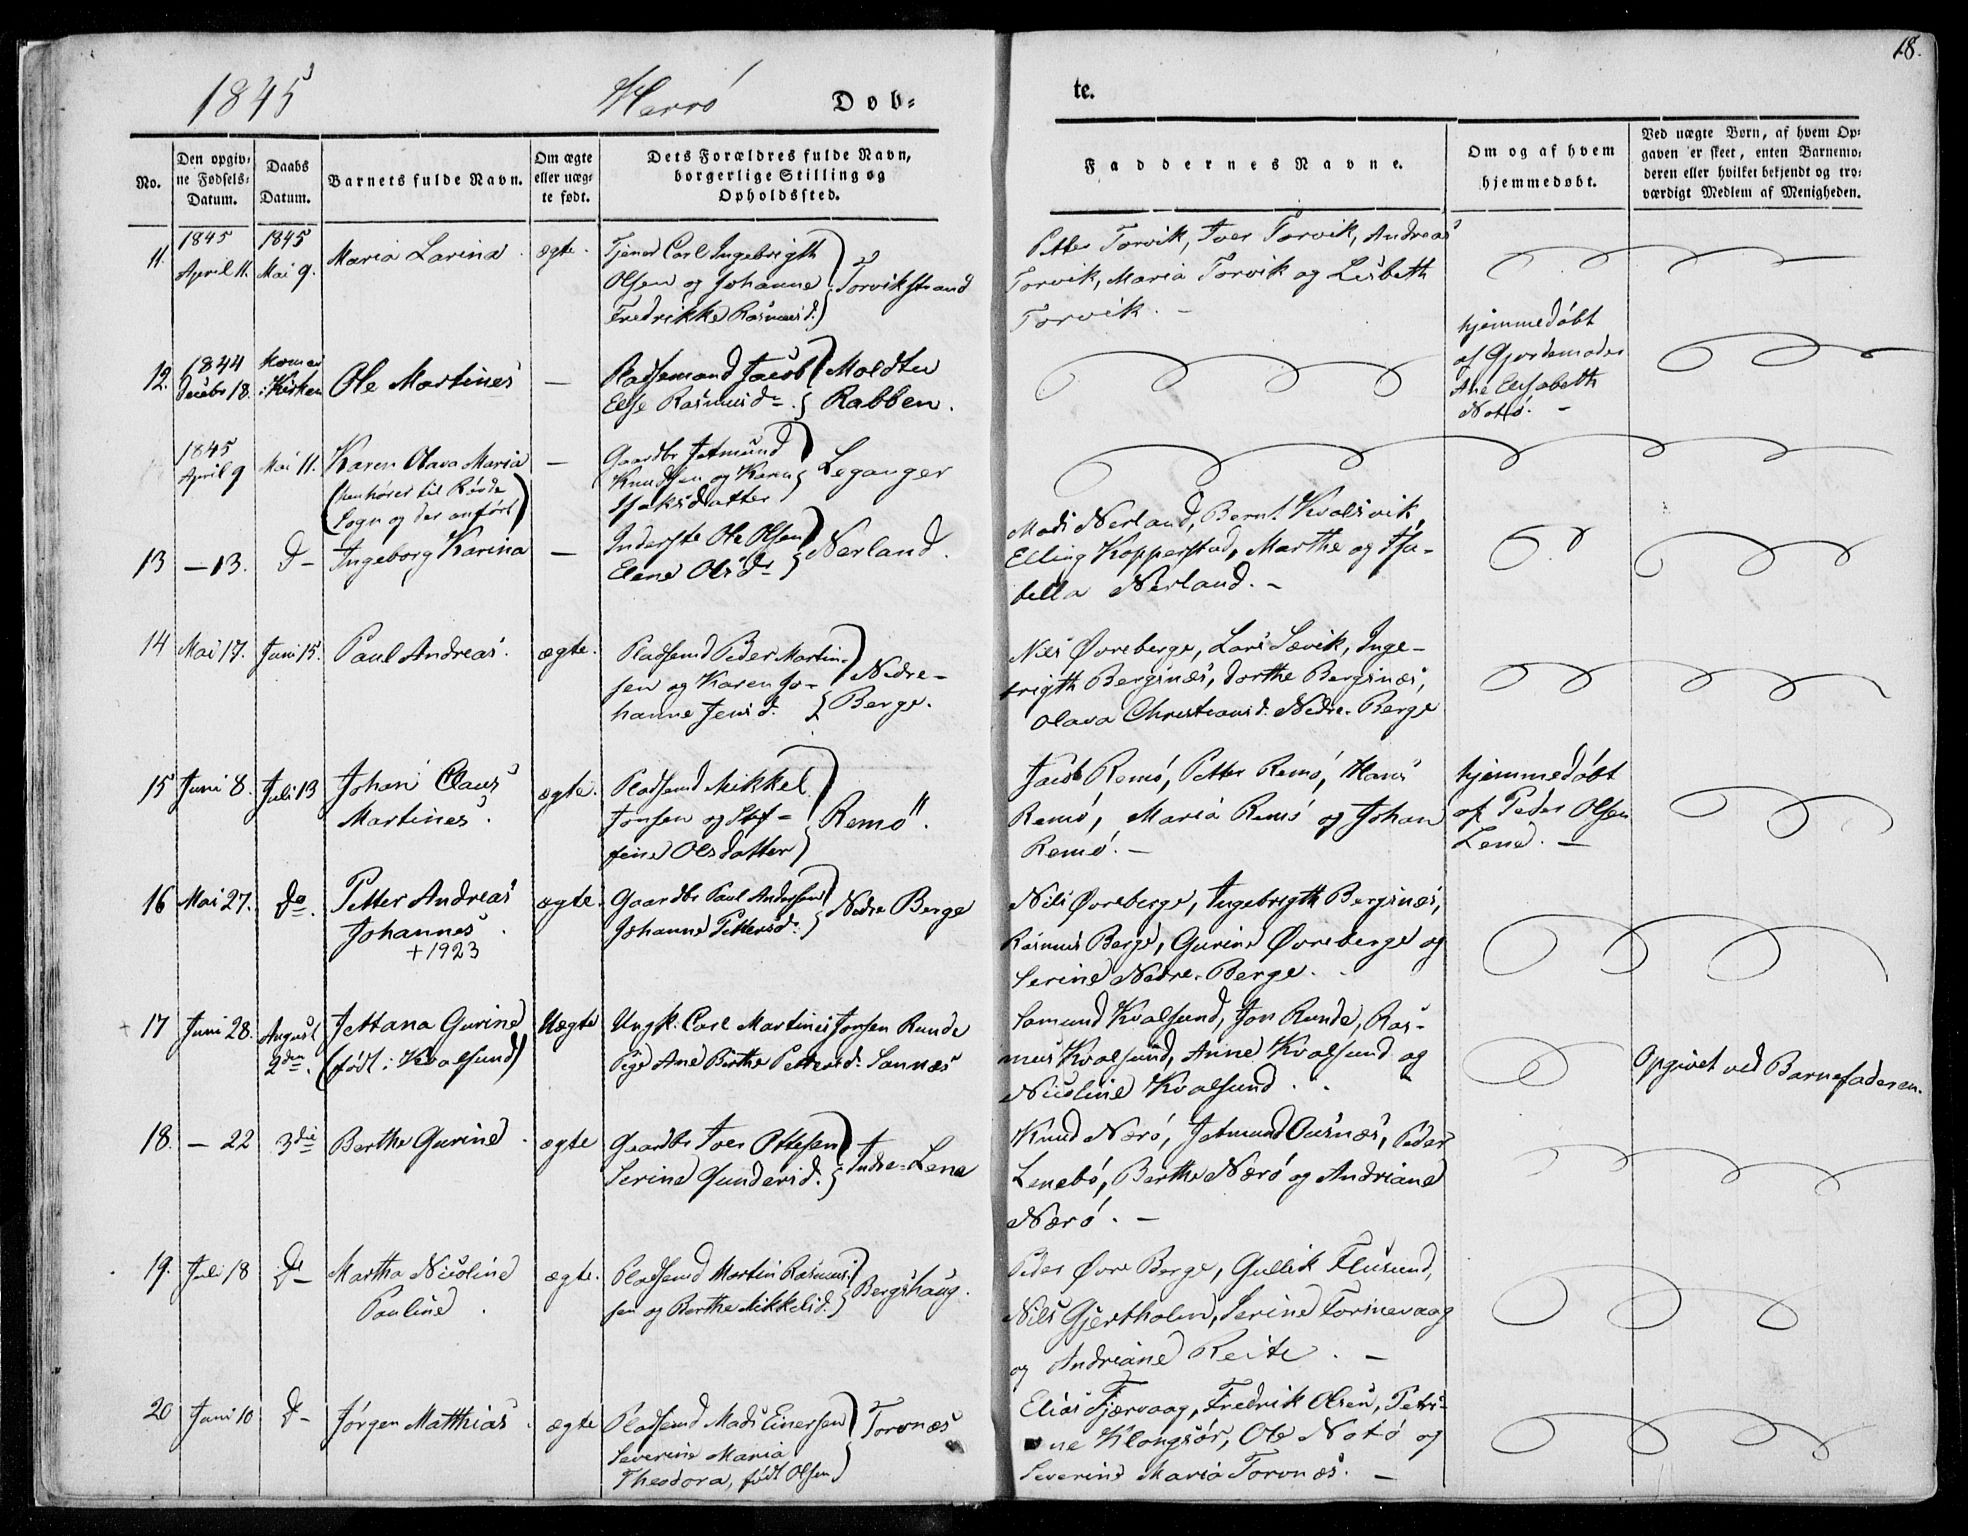 18.
1845 Herrö Døb=
te.
No.
Den opgiv=
ne Fødsels=
Datum.
Daabs
Datum.
Barnets fulde Navn.
Om ægte
eller uæg=
te født.
Dets Forældres fulde Navn,
borgerlige Stilling og
Opholdssted.
Faddernes Navne.
Om og af hvem
hjemmedøbt.
Ved uægte Børn, af hvem Op=
gaven er skeet, enten Barnemo=
deren eller hvilket bekjendt og tro=
værdigt Medlem af Menigheden.
11.
1845
April 11.
1845
Mai 9.
Maria Larina.
ægte.
Tjener Carl Ingebrigth
Olsen og Johanne
Fredrikke Rasmusd.
Torvikstrand
Petter Torvik, Iver Torvik, Andreas
Torvik, Maria Torvik og Lisbeth
Torvik. -
12.
1844
Decebr 18.
Kirken
Ole Martines
—
Pladsemand Jacob
Else Rasmusd.
Moldtu
Rabben.
hjemmedöbt
af Gjordemoder
Ane Elisabeth
Notö. -
1845
April 9
Mai 11.
Karen Olava Maria
(henhörer til Rövde
Sogn og der anfört)
—
Gaardbr Jetmund
Knudsen og Karen
Isaksdatter
Leganger
13
— 13.
D-
Ingeborg Karina
—
Inderste Ole Olsen
Elene Olsd.
Nerland.
Mads Nerland, Bernt Kvalsvik,
Elling Kopperstad, Marthe og Isa-
bella Nerland. -
14
Mai 17.
Juni 15.
Paul Andreas.
ægte.
Pladsemd Peder Martin-
sen og Karen Jo-
hanne Jensd.
Nedre-
Berge.
Nils Øvreberge, Lars Sævik, Inge-
brigth Bergsnæs, Dorthe Bergsnæs,
Olava Christiansd. Nedre-Berge
15
Juni 8.
Juli 13
Johan Claus
Martines.
ægte.
Pladsemd Mikkel
Jonsen og Stef-
fine Olsdatter
Remö.
Jacob Remö, Petter Remö, Hans
Remö, Maria Remö og Johan
Remö. -
hjemmedöbt
af Peder Olsen
Lene. -
16
Mai 27.
Do.
Petter Andreas
Johannes.
+ 1923
ægte.
Gaardbr Paul Andersen
Johanne Pettersd.
Nedre Berge
Nils Øvreberge, Ingebrigth Bergsnæs,
Rasmus Berge, Gurine Øvreberge og
Serine Nedre-Berge.
17
Juni 28.
August
2den.
Jettana Gurine
(födt i Kvalsund)
Uægte
Ungk. Carl Martines Jonsen Runde
Pige Ane Birthe Pettersd. Sannæs
Samund Kvalsund, Jon Runde, Ras-
mus Kvalsund, Anne Kvalsund og
Nicoline Kvalsund.
Opgivet ved Barnefaderen.
18.
— 22
3die
Berthe Gurine.
ægte
Gaardbr Iver Ottesen
Serine Gundersd.
Indre-Lene
Knud Nærö, Jetmund Ousnæs, Peder
Lenebö, Berthe Nærö og Andriane
Nærö. -
19.
Juli 18
D-
Martha Nicoline
Pauline.
ægte.
Pladsemd Martin Rasmus-
sen og Berthe Mikkelsd.
Bergshaug.
Peder Øvre Berge, Gullik Flusund,
Nils Gjertholm, Serine Torinevaag
og Andriane Reite. -
20
Juni 10
D-
Jörgen Matthias.
ægte
Pladsemd Mads Einersen
Severine Maria
Theodora, födt Olsen
Torvnæs
Elias Fjærvaag, Fredrik Olsen, Petri-
ne Klongsör, Ole Notö og
Severine Maria Torvnæs. -